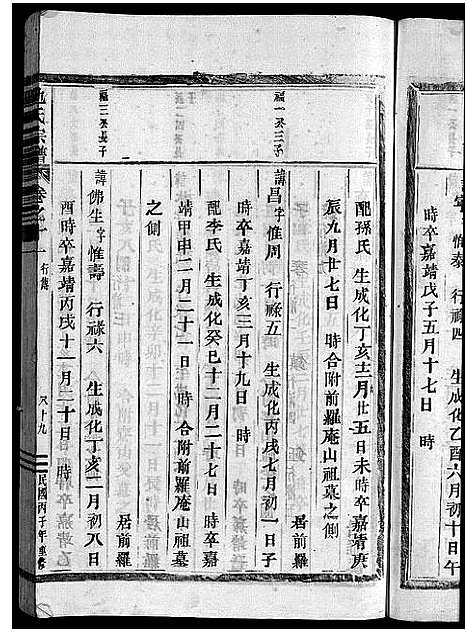 諱寧 字惟泰 行祿四 生成化乙酉六月初十日午
時卒嘉靖戊子五月十七日 時
配孫氏 生成化丁亥十二月廿五日未時卒嘉靖庚
辰九月廿七日 時合附前羅庵山祖墓之側
居前羅
福一公三子
諱昌 字惟周 行祿五 生成化丙戌七月初一日子
時卒嘉靖丁亥三月十九日 時
配李氏 生成化癸巳十二月二十七日 時卒嘉
靖甲申二月二十一日 時合附前羅庵山祖墓
之側
居前羅
福二公長子
諱佛生 字惟壽 行祿六 生成化丁亥二月初八日
酉時卒嘉靖丙戌十一月二十日 時
氏宗譜 卷之一 行傳 尺十九 民國丙子年重修